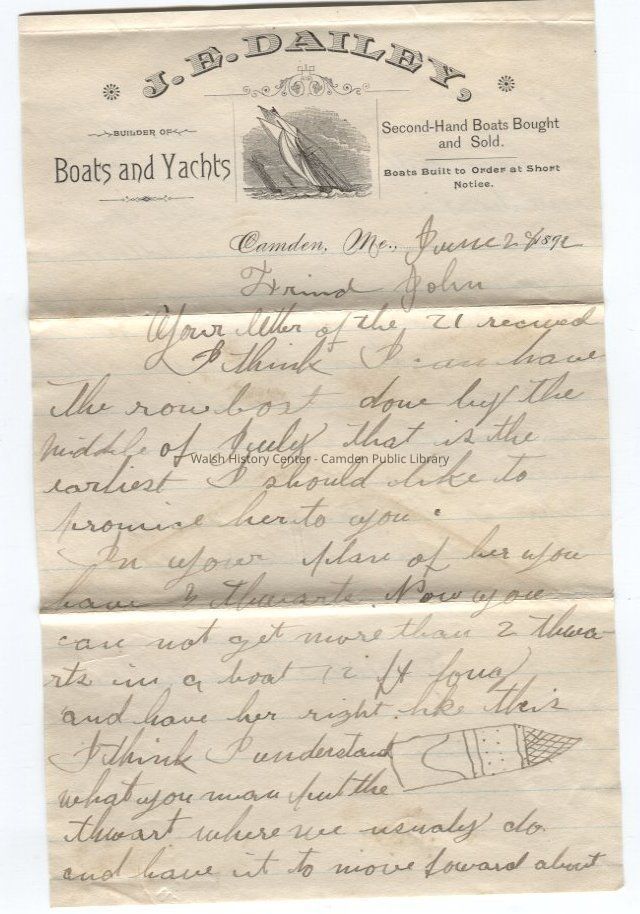 J. E. DAILEY,
BUILDER OF
Boats and Yachts
Second-Hand Boats Bought
and Sold.
Boats Built to Order at Short
Notice.
Camden, Me., June 24 1892
Frind John
Your letter of the 21 recived
I think I can have
the row boat done by the
middle of July that is the
earliest I should like to
promise her to you.
In your plan of her you
have 3 thwarts. Now you
can not get more than 2 thwa-
rts in a boat 12 ft long
and have her right. like this
I think I understand
what you mean put the
thwart where we usualy do.
and have it to move foward about
Walsh History Center - Camden Public Library